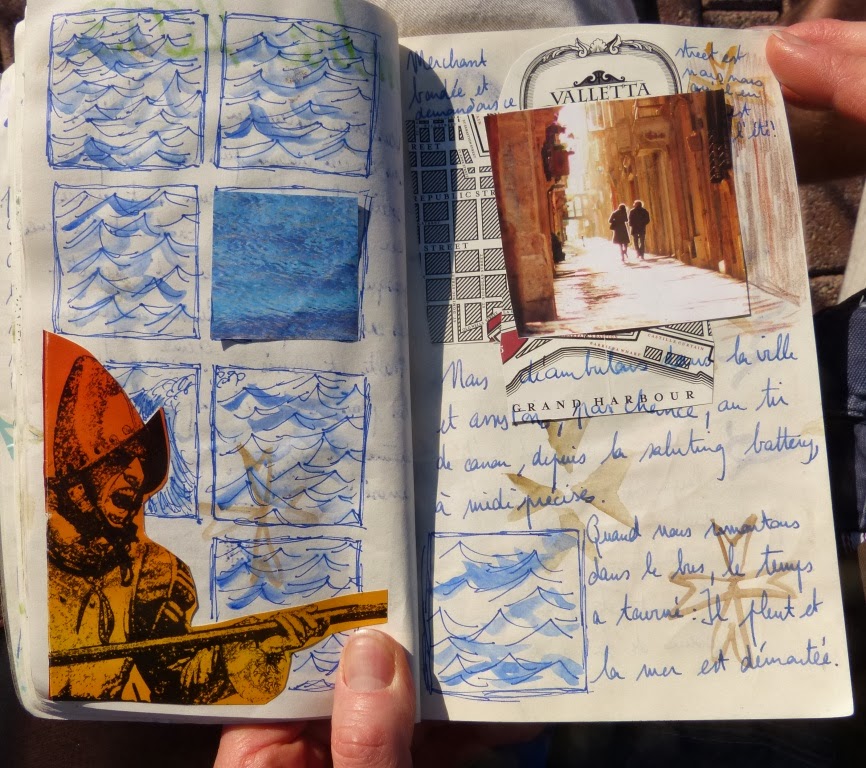 Merchant street est
bondée et nous nous
est
l'été!
VALLETTA
STREET
REPUBLIC STR
STREET
Nous déambulons dans la ville
GRAND HARBOUR
et par chance, au tir
de canon, depuis la saluting battery,
à midi précises.
Quand nous remontons
dans le bus, le temps
a tourné : Il pleut et
la mer est démontée.